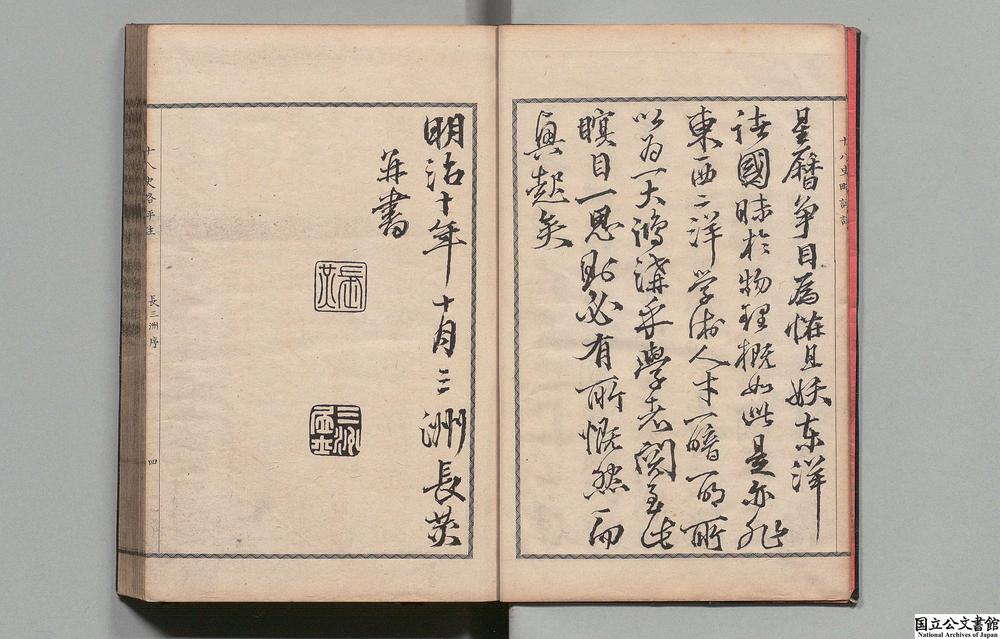 星暦争目為怪且妖東洋
諸國昧於物理概如此是亦非
東西二洋学術人才一暗一明所
以為一大鴻溝乎學者閲至此
瞑目一思則必有所慨然而
興起矣
十八史略評註
明治十年十月三洲長炗
并書
長炗
十八史略評註
長三洲序
四
国立公文書館
National Archives of Japan